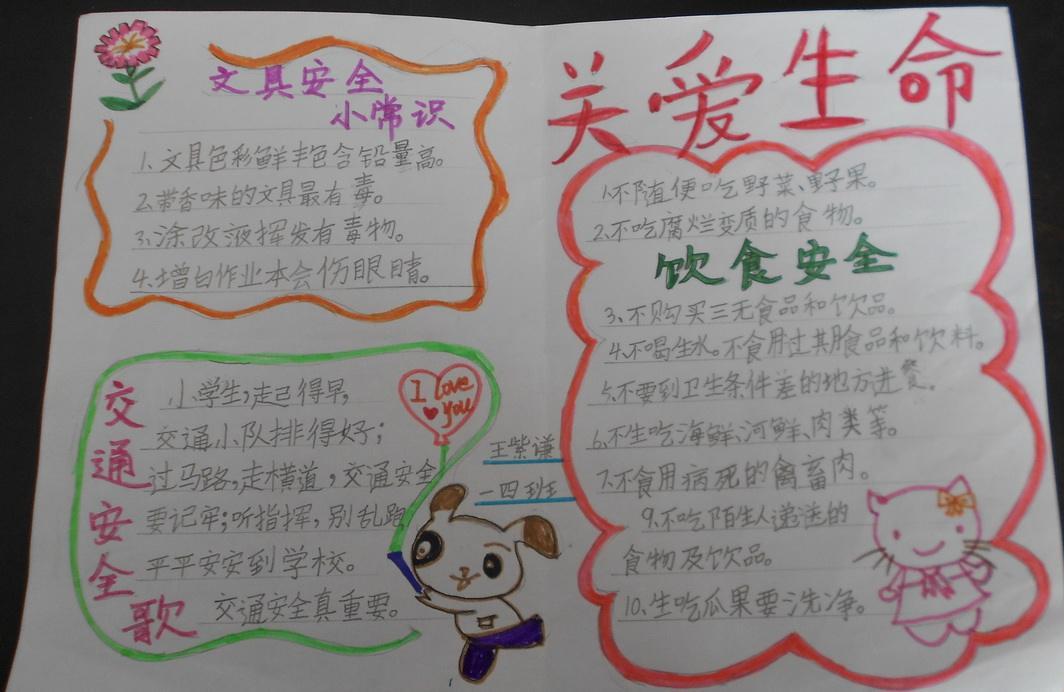 关爱生命
文具安全
小常识
1、文具色彩鲜丰色含铅量高。
2、带香味的文具最有毒。
3、涂改液挥发有毒物。
4、增白作业本会伤眼睛。
交通安全歌
小学生,走己得早,
交通小队排得好;
过马路,走横道,交通安全
要记牢;听指挥,别乱跑
平平安安到学校。
交通安全真重要。
I love
you
王紫谦
一四班
1、不随便吃野菜、野果。
2、不吃腐烂变质的食物。
饮食安全
3、不购买三无食品和饮品。
4、不喝生水。不食用过其月食品和饮料。
5、不要到卫生条件差的地方进餐。
6、不生吃海鲜、河鲜、肉类等。
7、不食用病死的禽畜肉。
9、不吃陌生人递送的
食物及饮品。
10、生吃瓜果要洗净。